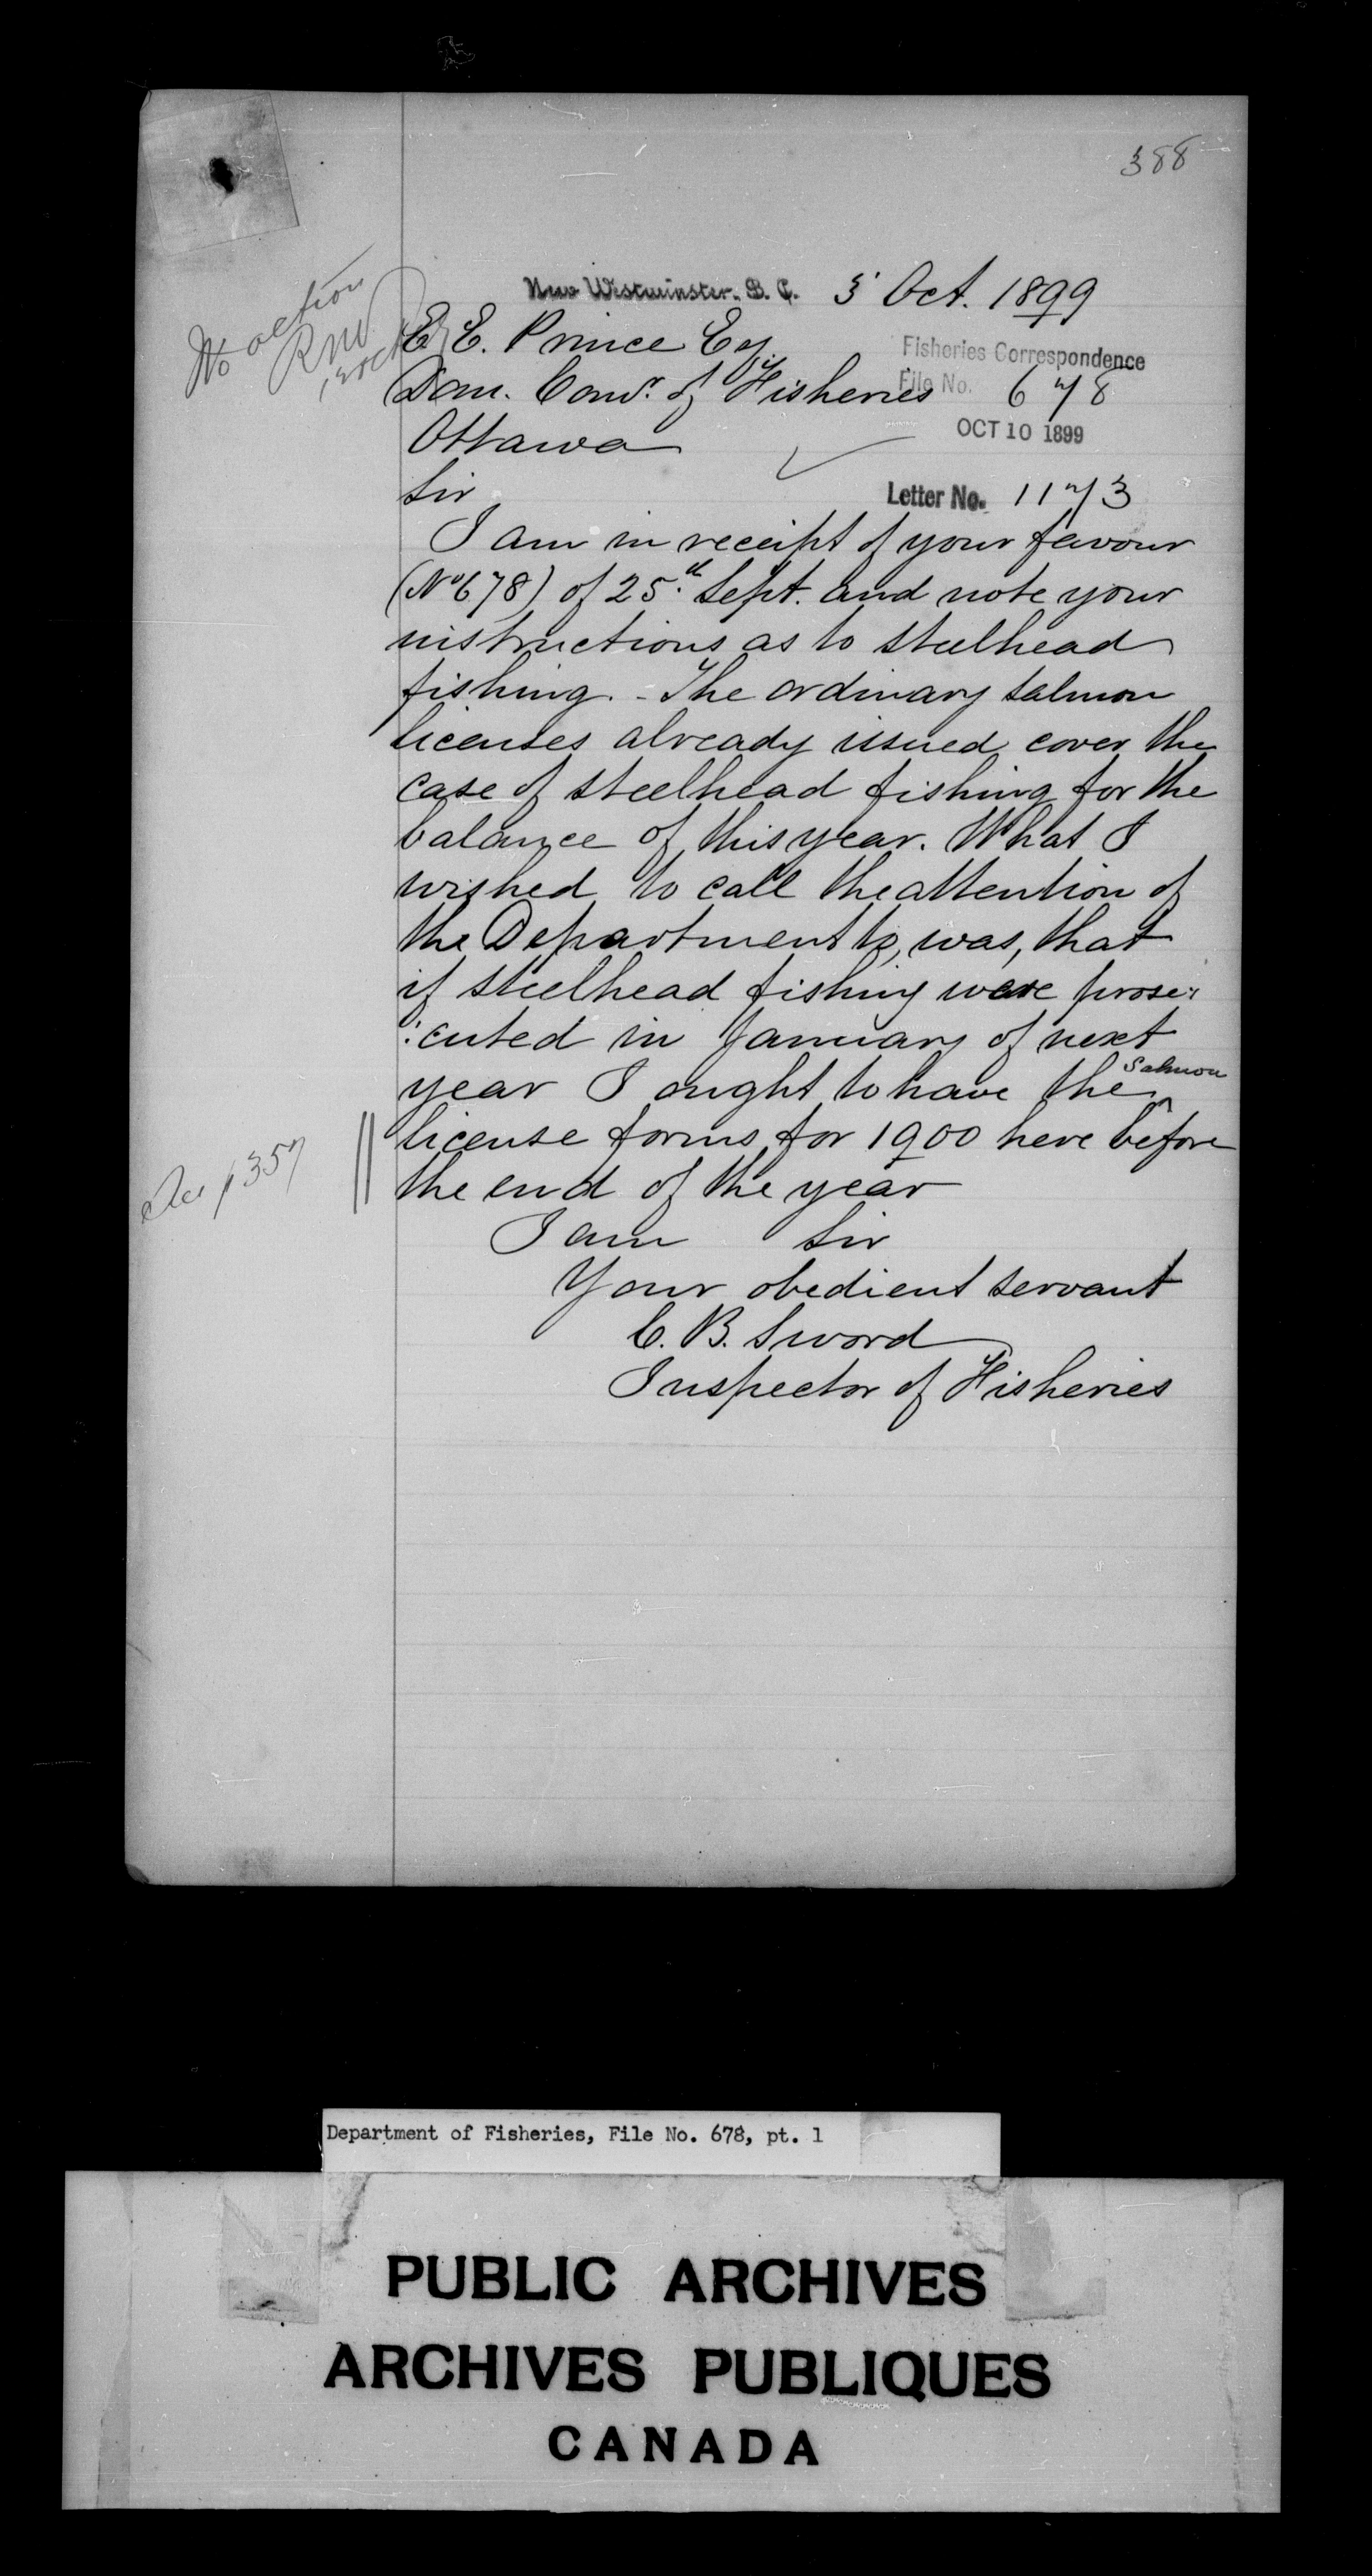 388
New Westminster. B. C. 3 Oct. 1899
No action
RNV
E. E. Prince Esq.
Fisheries Correspondence
Dom. Comr. of Fisheries
File No. 678
Ottawa
OCT 10 1899
Sir
Letter No. 1173
I am in receipt of your favour
(No 678) of 25th Sept. and note your
instructions as to steelhead
fishing. - The ordinary salmon
licenses already issued cover the
case of steelhead fishing for the
balance of this year. What I
wished to call the attention of
the Department to, was, that
if steelhead fishing were prose:
:cuted in January of next
year I ought to have the ^ Salmon
license forms for 1900 here before
the end of the year
1357
I am Sir
Your obedient servant
C. B. Sword
Inspector of Fisheries
Department of Fisheries, File No. 678, pt. 1
PUBLIC ARCHIVES
ARCHIVES PUBLIQUES
CANADA